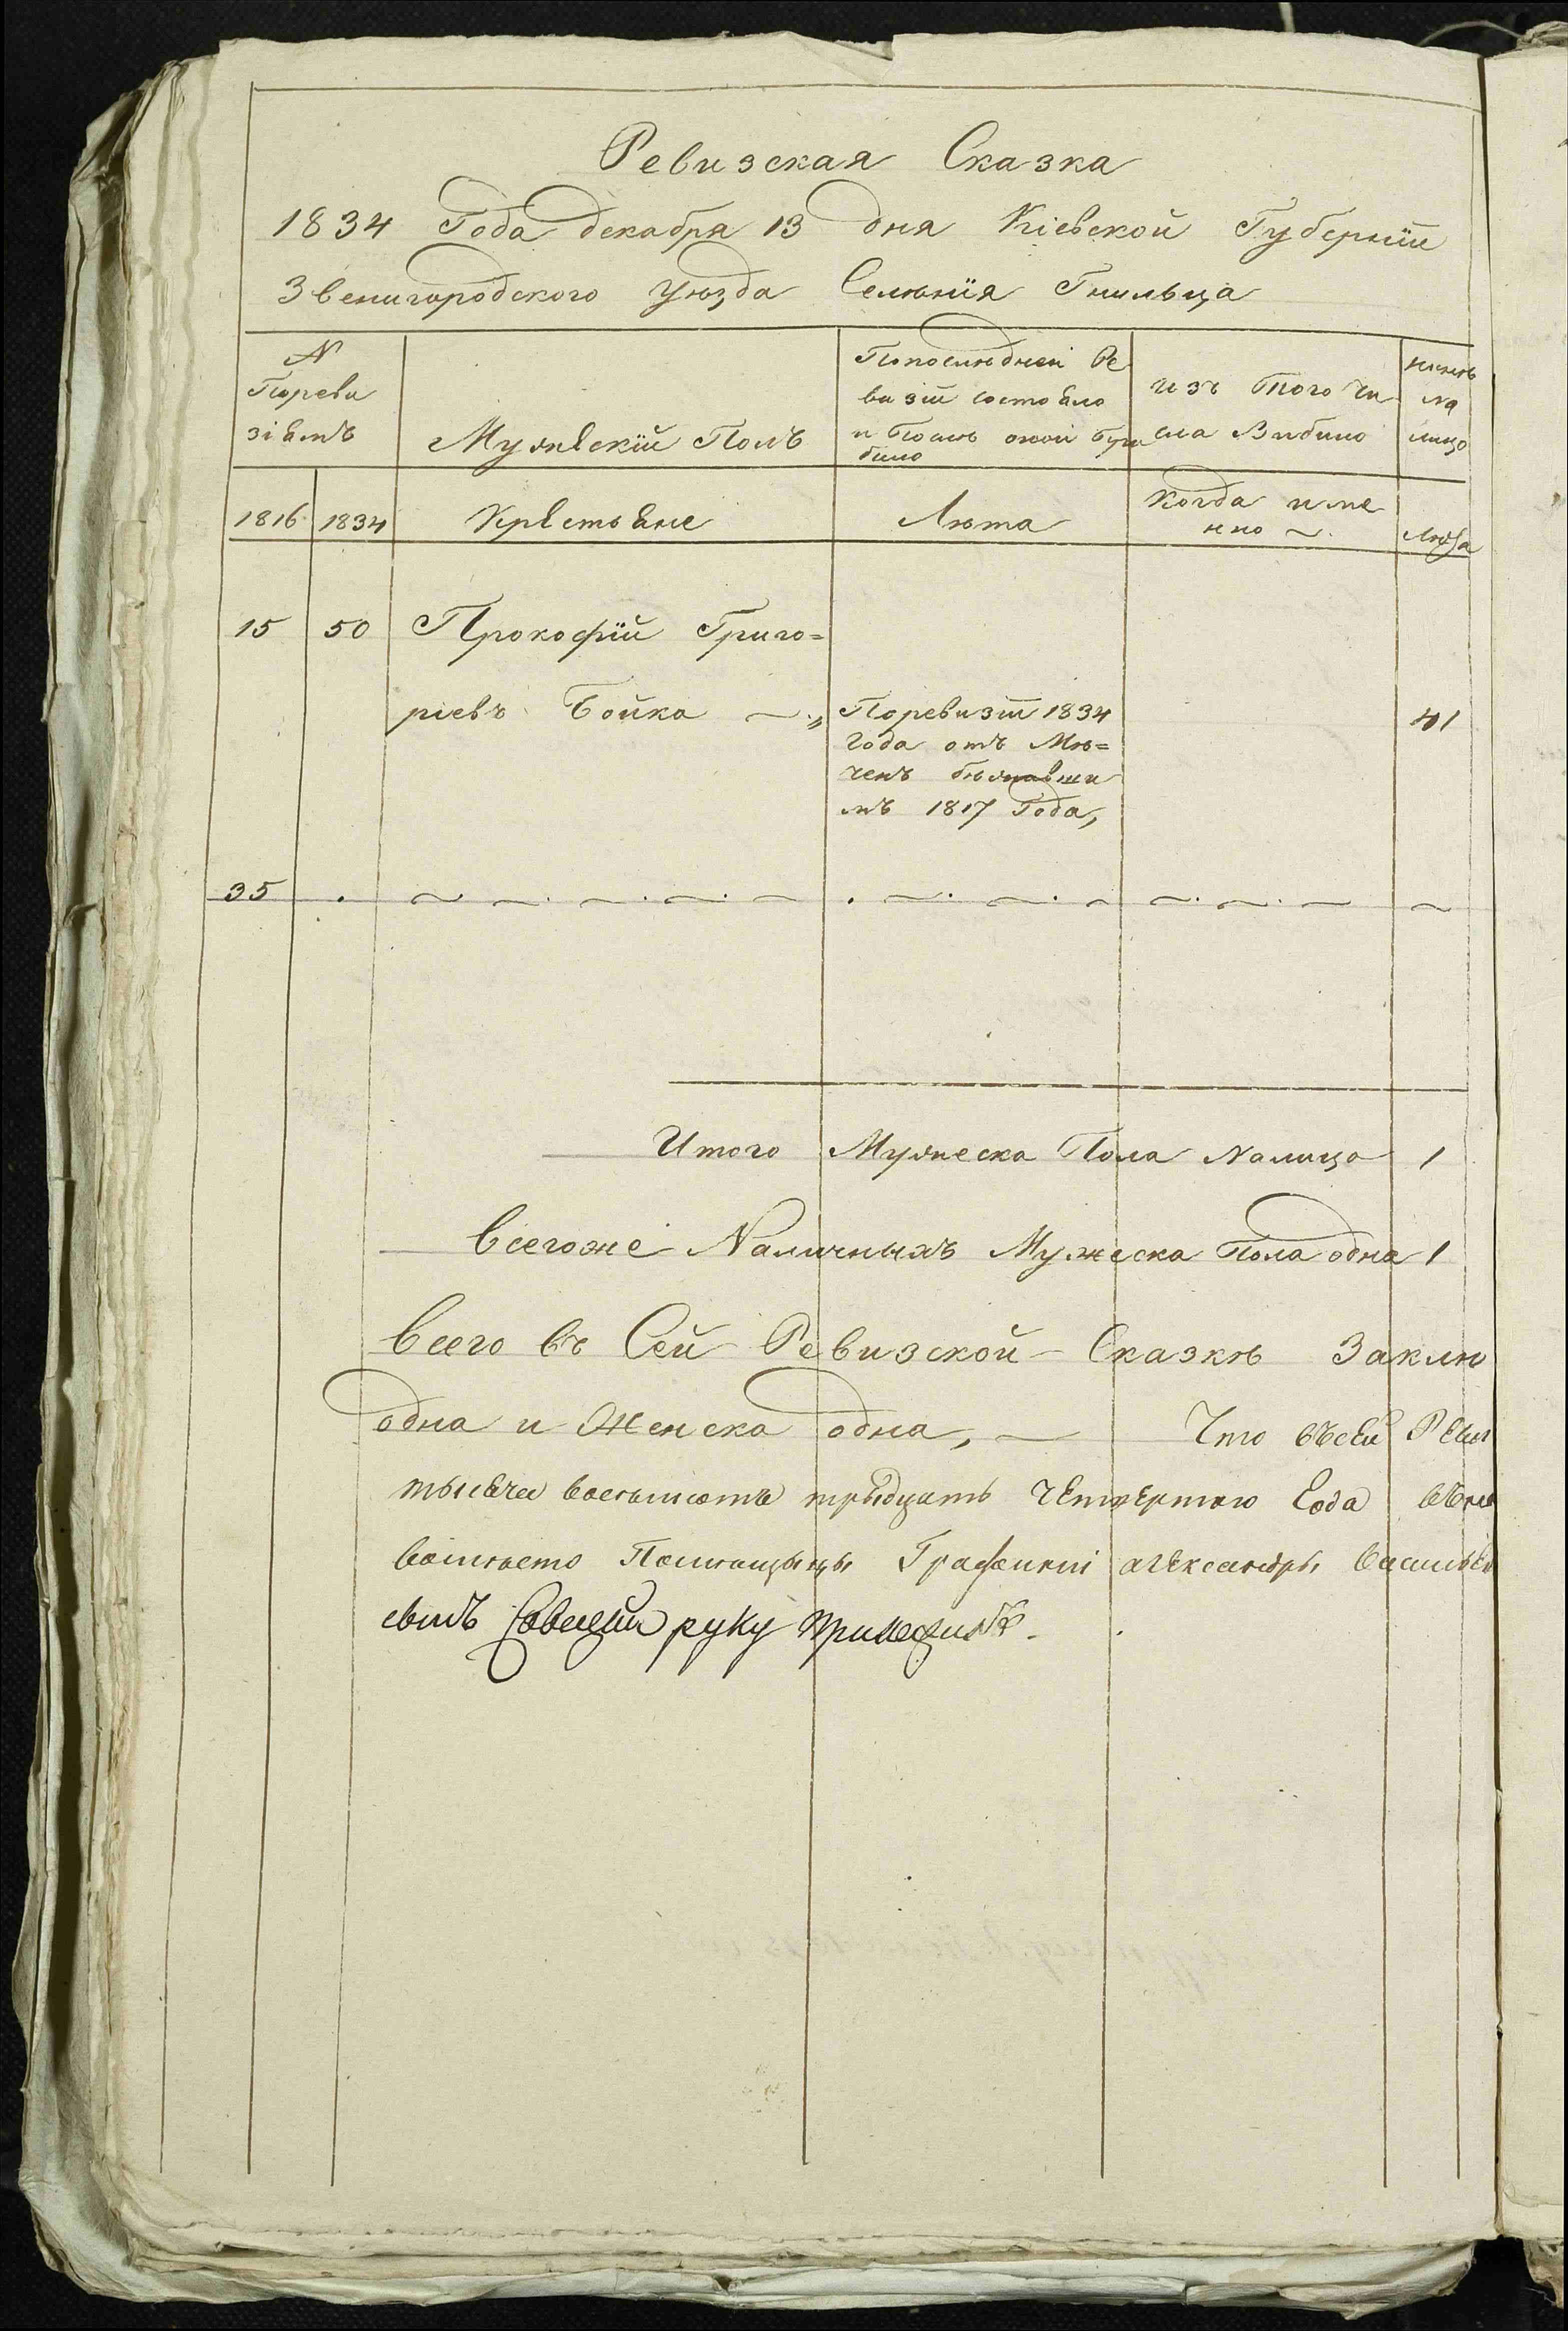 Ревизская Сказка
1834 Года декабря 13 дня Кіевской Губерніи
Звенигородского уѣзда Селѣнія Гнильца
N
Пореви
зіямъ
Мужескій Полъ
Попослѣдней Ре
визіи состояло
и послѣ оной
било
изъ того чи
сла Вибило
нинѣ
на
лицо
1816 1834 Крестьяне Лѣта
Когда име
нно
Лѣта
15 50 Прокофій Григо=
ріевъ Бойка
Поревизіи 1834
года отъ
1817 Года,
41
35
Итого Мужеска Пола Налицо 1
Всегоже Наличныхъ Мужеска Пола одна 1
Всего въ Сей Ревизской Сказкѣ Заклю
одна и Женска одна,
Что въсей Реви
тысяча восемьсотъ тридцать четвертого Года
Графини александры Василье
руку приложилъ